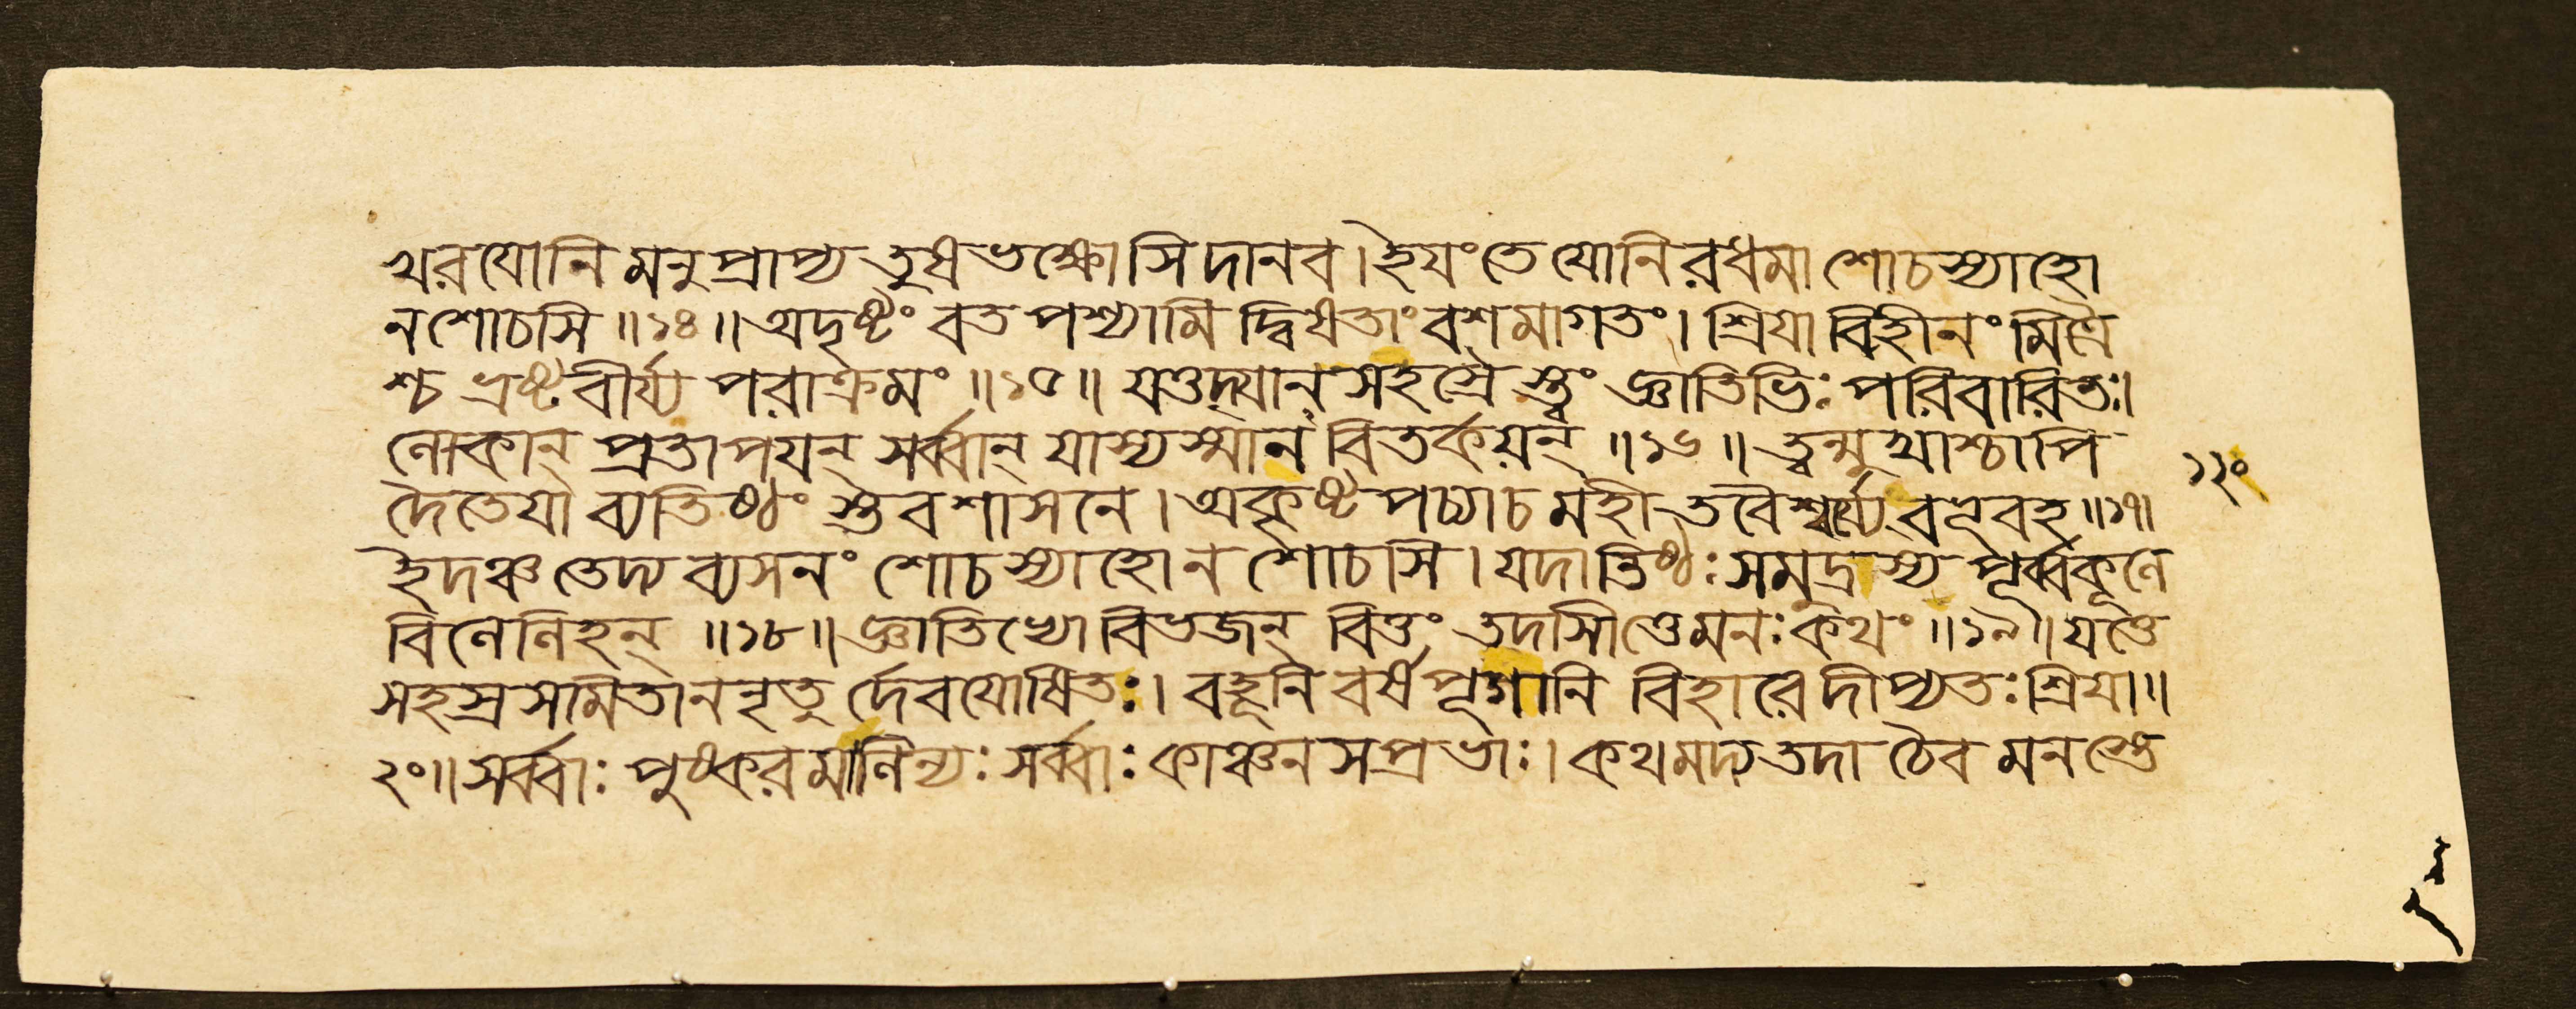 খরযোনিমনুপ্রাপ্য তুষভক্ষোসি দানব। ইযং তে যোনিরধমা শোচস্যাহো
ন শোচসি॥১৪॥ অদৃষ্টং বত পশ্যামি দ্বিষতাং বশমাগতং। শ্রিযা বিহীনং মিত্রৈ
শ্চ ভ্রষ্টবীর্য্য পরাক্রমং॥১৫॥ যত্তদ্যান্ সহস্রৈ স্ত্বং জ্ঞাতিভিঃ পরিবারিতঃ।
লোকান্ প্রতাপযন্ সর্ব্বান্ যাস্যস্মান্ বিতর্কয়ন্॥১৬॥ ত্বন্মুখাশ্চাপি
দৈতেযা ব্যতিষ্ঠং স্তব শাসনে। অকৃষ্টপচ্যা চ মহী তবৈশ্বর্য্যে বভূবহ॥১৭॥
১২০
ইদঞ্চ তেদ্য ব্যসনং শোচস্যাহো ন শোচসি। যদাতিষ্ঠঃ সমুদ্রস্য পূর্ব্বকূলে
বিলেলিহন্॥১৮॥ জ্ঞাতিভ্যো বিভজন্ বিত্তং তদাসীত্তে মনঃ কথং॥১৯॥ যত্তে
সহস্রসমিতা ননৃতু র্দেবযোষিতঃ। বহূনি বর্ষপূগানি বিহারে দীপ্যতঃ শ্রিযা॥
২০॥ সর্ব্বাঃ পুষ্করমালিন্যঃ সর্ব্বাঃ কাঞ্চনসপ্রভাঃ। কথমদ্য তদা চৈব মনস্তে